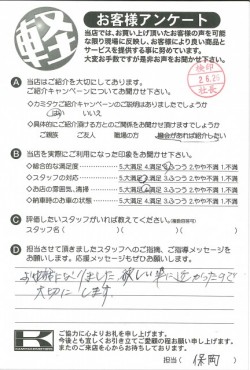 軽
お客様アンケート
当店では、お買い上げ頂いたお客様の声を可能
な限り現場に反映し、お客様により良い商品と
サービスを提供する事に努めています。
大変お手数ですが是非お声をお聞かせ下さい。
検印
社長
A 当店はご紹介を大切にしております。
ご紹介キャンペーンについてお聞かせ下さい。
◇カミタケご紹介キャンペーンのご説明はありましたでしょうか
はい いいえ
◇具体的にご紹介頂ける方とのご関係をお聞かせ頂けますでしょうか
ご親族 ご友人 職場の方 機会があれば紹介したい
B 当店を実際にご利用になった印象をお聞かせ下さい。
◇総合的な満足度 5.大満足 4.満足 3.ふつう 2.やや不満 1.不満
◇スタッフの対応 5.大満足 4.満足 3.ふつう 2.やや不満 1.不満
◇お店の雰囲気、清掃 5.大満足 4.満足 3.ふつう 2.やや不満 1.不満
◇納車時のお車の状態 5.大満足 4.満足 3.ふつう 2.やや不満 1.不満
C 評価したいスタッフがいれば教えてください。
スタッフ名( )( )
D 担当させて頂きましたスタッフへのご指摘、ご指導メッセージを
お願いします。応援メッセージもぜひお願いします。
お世話になりました 欲しい車に近かったので
大切にします。
K
ご協力に心よりお礼を申し上げます。
今後とも宜しくお引き立てご愛顧の程お願い申し上げます。
またのご来店を心からお待ちしております。
担当( 保岡 )